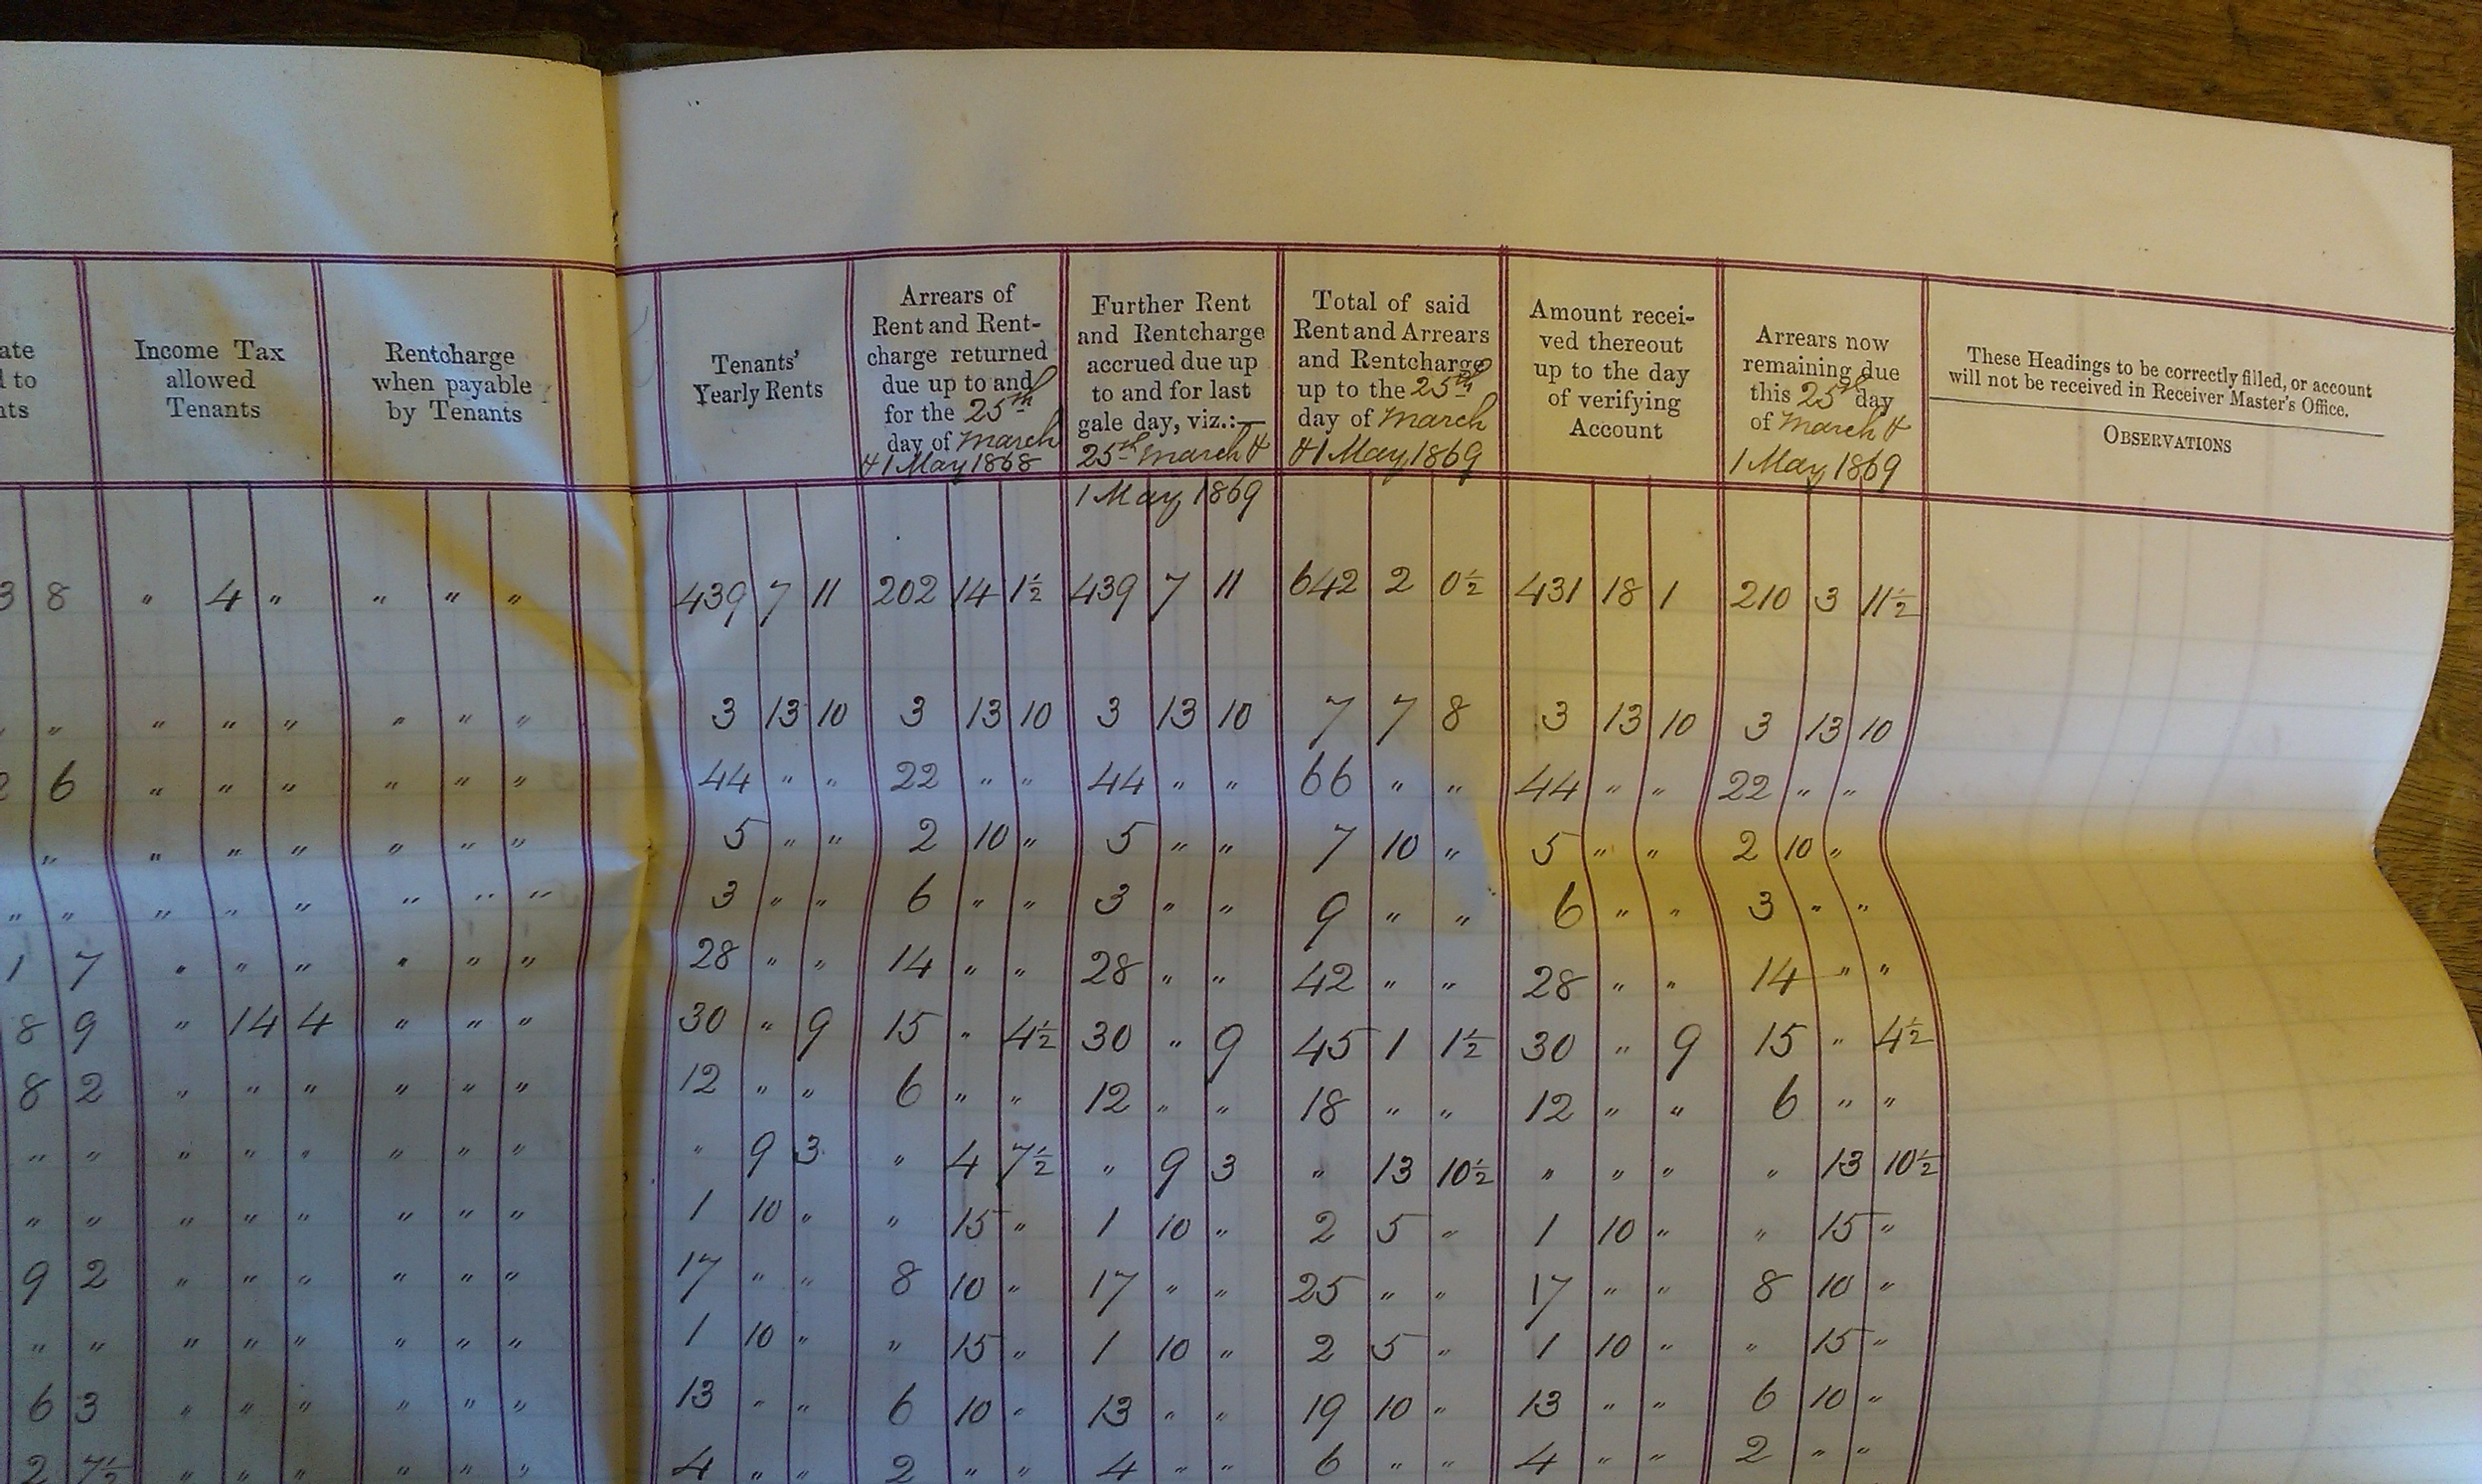 ate
to
nts
Income Tax
allowed
Tenants
Rentcharge
when payable
by Tenants
Tenants'
Yearly Rents
Arrears of
Rent and Rent-
charge returned
due up to and
for the 25th
day of March
& 1 May 1868
Further Rent
and Rentcharge
accrued due up
to and for last
gale day, viz.:—
25th March &
1 May 1869
Total of said
Rent and Arrears
and Rentcharge
up to the 25th
day of March
& 1 May 1869
Amount recei-
ved thereout
up to the day
of verifying
Account
Arrears now
remaining due
this 25th day
of March &
1 May 1869
These Headings to be correctly filled, or account
will not be received in Receiver Master's Office.
OBSERVATIONS
3 8 " 4 " " " " 439 7 11 202 14 1½ 439 7 11 642 2 0½ 431 18 1 210 3 11½
" " " " " " " " 3 13 10 3 13 10 3 13 10 7 7 8 3 13 10 3 13 10
2 6 " " " " " " 44 " " 22 " " 44 " " 66 " " 44 " " 22 " "
" " " " " " " 5 " " 2 10 " 5 " " 7 10 " 5 " " 2 10 "
" " " " " " " " 3 " " 6 " " 3 " " 9 " " 6 " " 3 " "
1 7 " " " " " " 28 " " 14 " " 28 " " 42 " " 28 " " 14 " "
8 9 " 14 4 " " " 30 " 9 15 " 4½ 30 " 9 45 1 1½ 30 " 9 15 " 4½
8 2 " " " " " " 12 " " 6 " " 12 " " 18 " " 12 " " 6 " "
" " " " " " " " " 9 3 " 4 7½ " 9 3 " 13 10½ " " " " 13 10½
" " " " " " " " 1 10 " " 15 " 1 10 " 2 5 " 1 10 " " 15 "
9 2 " " " " " " 17 " " 8 10 " 17 " " 25 " " 17 " " 8 10 "
" " " " " " " " 1 10 " " 15 " 1 10 " 2 5 " 1 10 " " 15 "
6 3 " " " " " " 13 " " 6 10 " 13 " " 19 10 " 13 " " 6 10 "
2 7½ " " " " " " 4 " " 2 " " 4 " " 6 " " 4 " " 2 " "